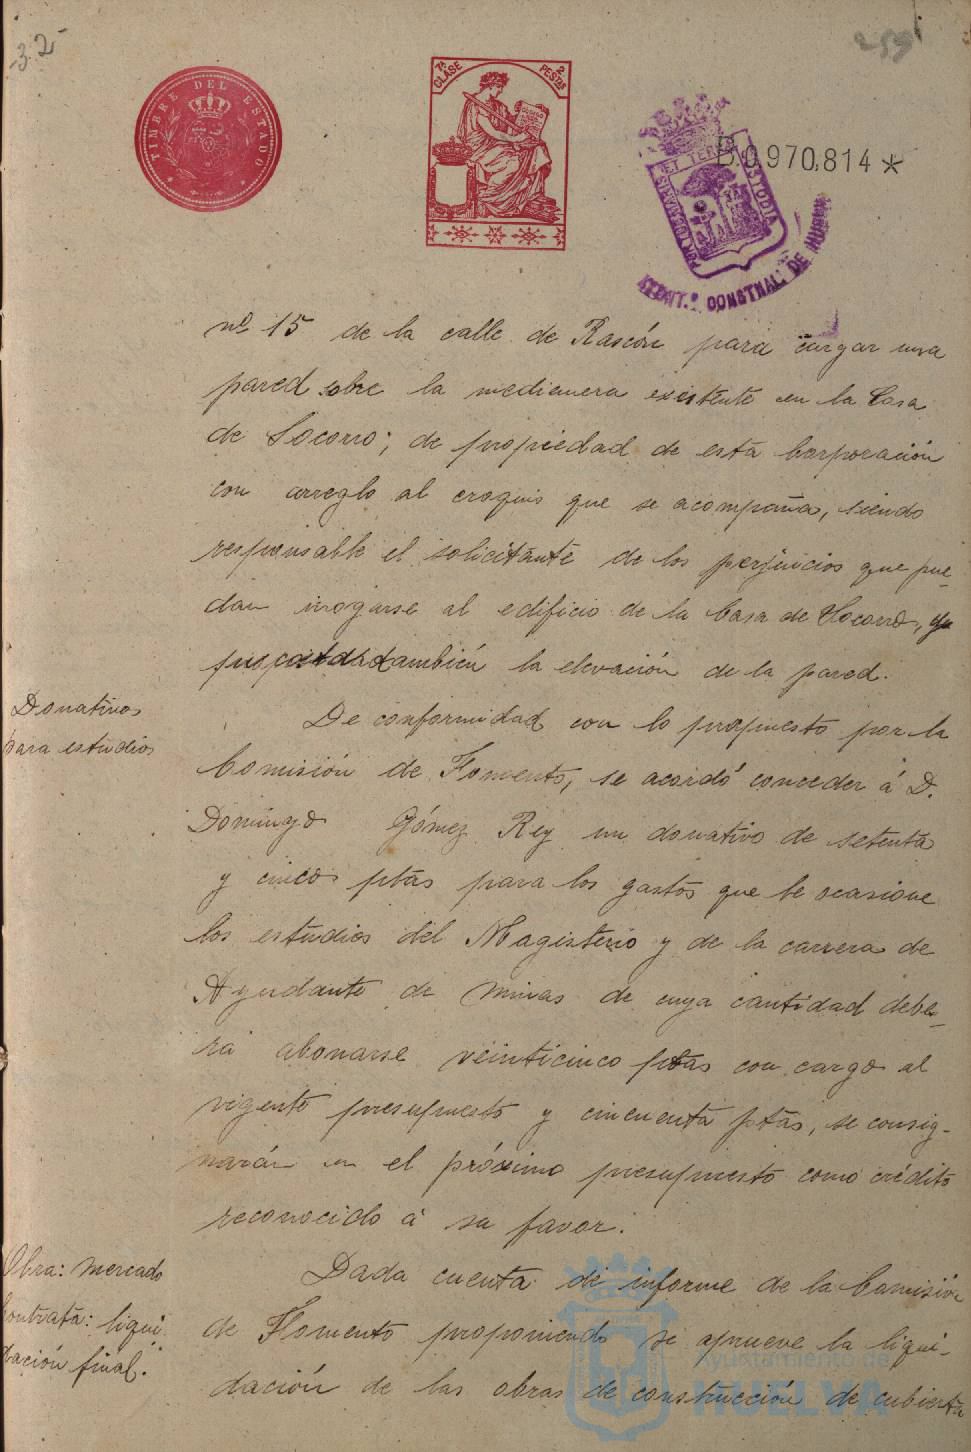 32
259
TIMBRE DEL ESTADO
7ª CLASE
2 PESTAS
B.0.970.814 *
PORTUS MARIS ET TERRÆ CUSTODIA
AYUNT.º CONSTNAL. DE HUELVA
nº 15 de la calle de Rascón para cargar una
pared sobre la medianera existente en la Casa
de Socorro; de propiedad de esta Corporación
con arreglo al croquis que se acompaña, siendo
responsable el solicitante de los perjuicios que pue-
dan irrogarse al edificio de la Casa de Socorro,
también la elevación de la pared.
Donativos
para estudios
De conformidad con lo propuesto por la
Comisión de Fomento, se acordó conceder á D.
Domingo Gómez Rey un donativo de setenta
y cinco ptas para los gastos que le ocasione
los estudios del Magisterio y de la carrera de
Ayudante de Minas de cuya cantidad debe-
rá abonarse veinticinco ptas con cargo al
vigente presupuesto y cincuenta ptas, se consig-
narán en el próximo presupuesto como crédito
reconocido á su favor.
Obra: mercado
Contrata: liqui-
dación final.
Dada cuenta de informe de la Comisión
de Fomento proponiendo se apruebe la liqui-
dación de las obras de construcción de cubierta
Ayuntamiento de
HUELVA